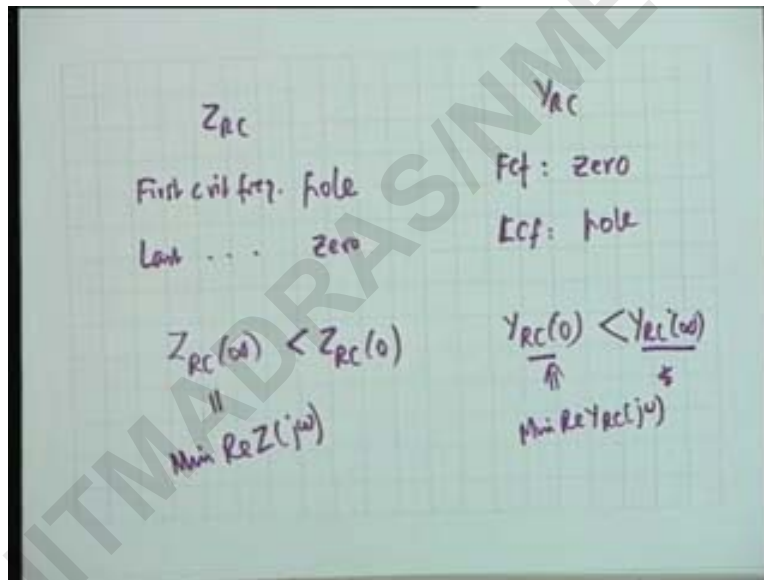 Z_RC
First crit freq. pole
Last . . . . zero
Z_RC(∞) < Z_RC(0)
||
Min Re Z(jω)
Y_RC
Fcf : zero
Lcf : pole
Y_RC(0) < Y_RC(∞)
⇑
Min Re Y_RC(jω)
IITMADRAS/NME